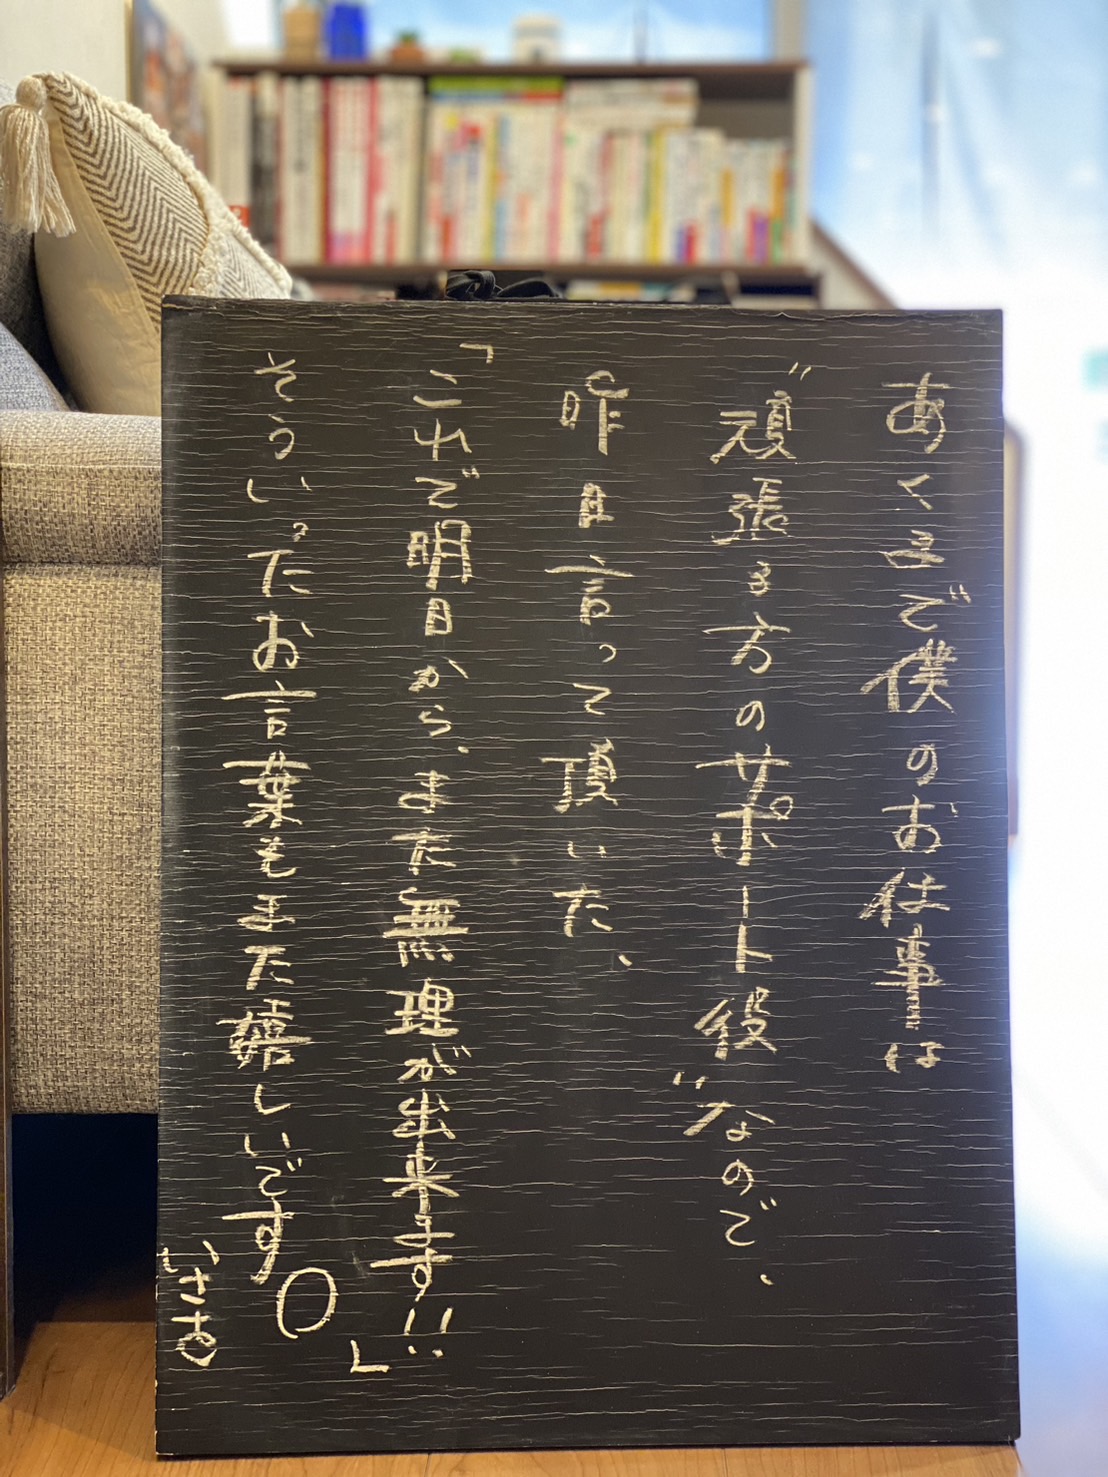 あくまで僕のお仕事は
"頑張る方のサポート役"なので、
昨日言って頂いた、
「これで明日から、また無理が出来ます!!」
そういったお言葉もまた嬉しいです。
いさお